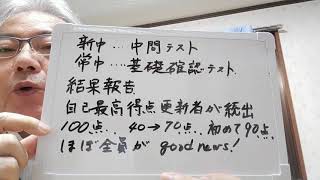 新中…中間テスト
常中…基礎確認テスト
結果報告
自己最高得点更新者が続出
100点‥40→70点‥初めて90点
ほぼ全員が good news!